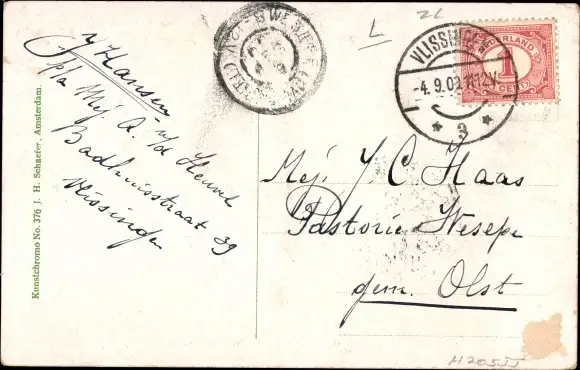 J Hansen
p/a Mej. A. v/d Heuvel
Badhuisstraat 39
Vlissingen
Kunstchromo No. 376 J. H. Schaefer, Amsterdam.
L
VLISSINGEN
-4.9.09 11-12V
3
NEDERLAND
1
CENT
Mej. J. C. Haas
Pastorie Wesepe
gem. Olst